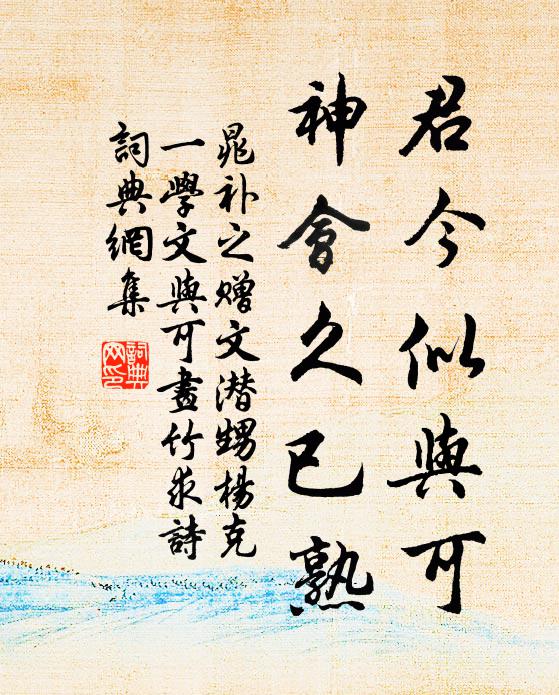 君今似與可
神會久已熟
晁补之赠文潜甥楊克
一學文與可畫竹求詩
詞典網集
詞典
网印